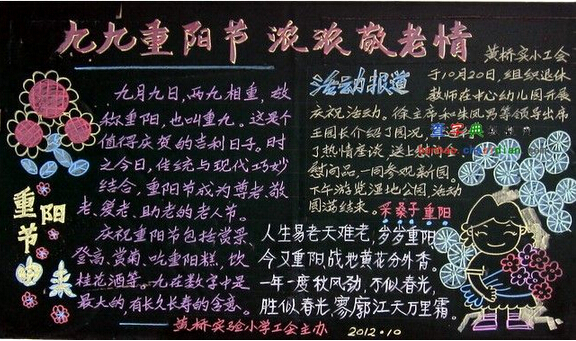 九九重阳节 浓浓敬老情
重阳
节由来
九月九日，两九相重，故
称重阳，也叫重九。这是个
值得庆贺的吉利日子。时
之今日，传统与现代巧妙
结合，重阳节成为尊老、敬
老、爱老、助老的老人节。
庆祝重阳节包括赏景、
登高、赏菊、吃重阳糕、饮
桂花酒等。九在数字中是
最大的，有长久长寿的含意。
活动报道
黄桥实小工会
于10月20日，组织退休
教师在中心幼儿园开展
庆祝活动。徐主席和朱凤男等领导出席
王园长介绍了园况
了热情座谈，送上
慰问品，一同参观新园。
下午游览湿地公园，活动
圆满结束。
采桑子 重阳
人生易老天难老，岁岁重阳
今又重阳战地黄花分外香。
一年一度秋风劲，不似春光，
胜似春光，寥廓江天万里霜。
黄桥实验小学工会主办 2012·10